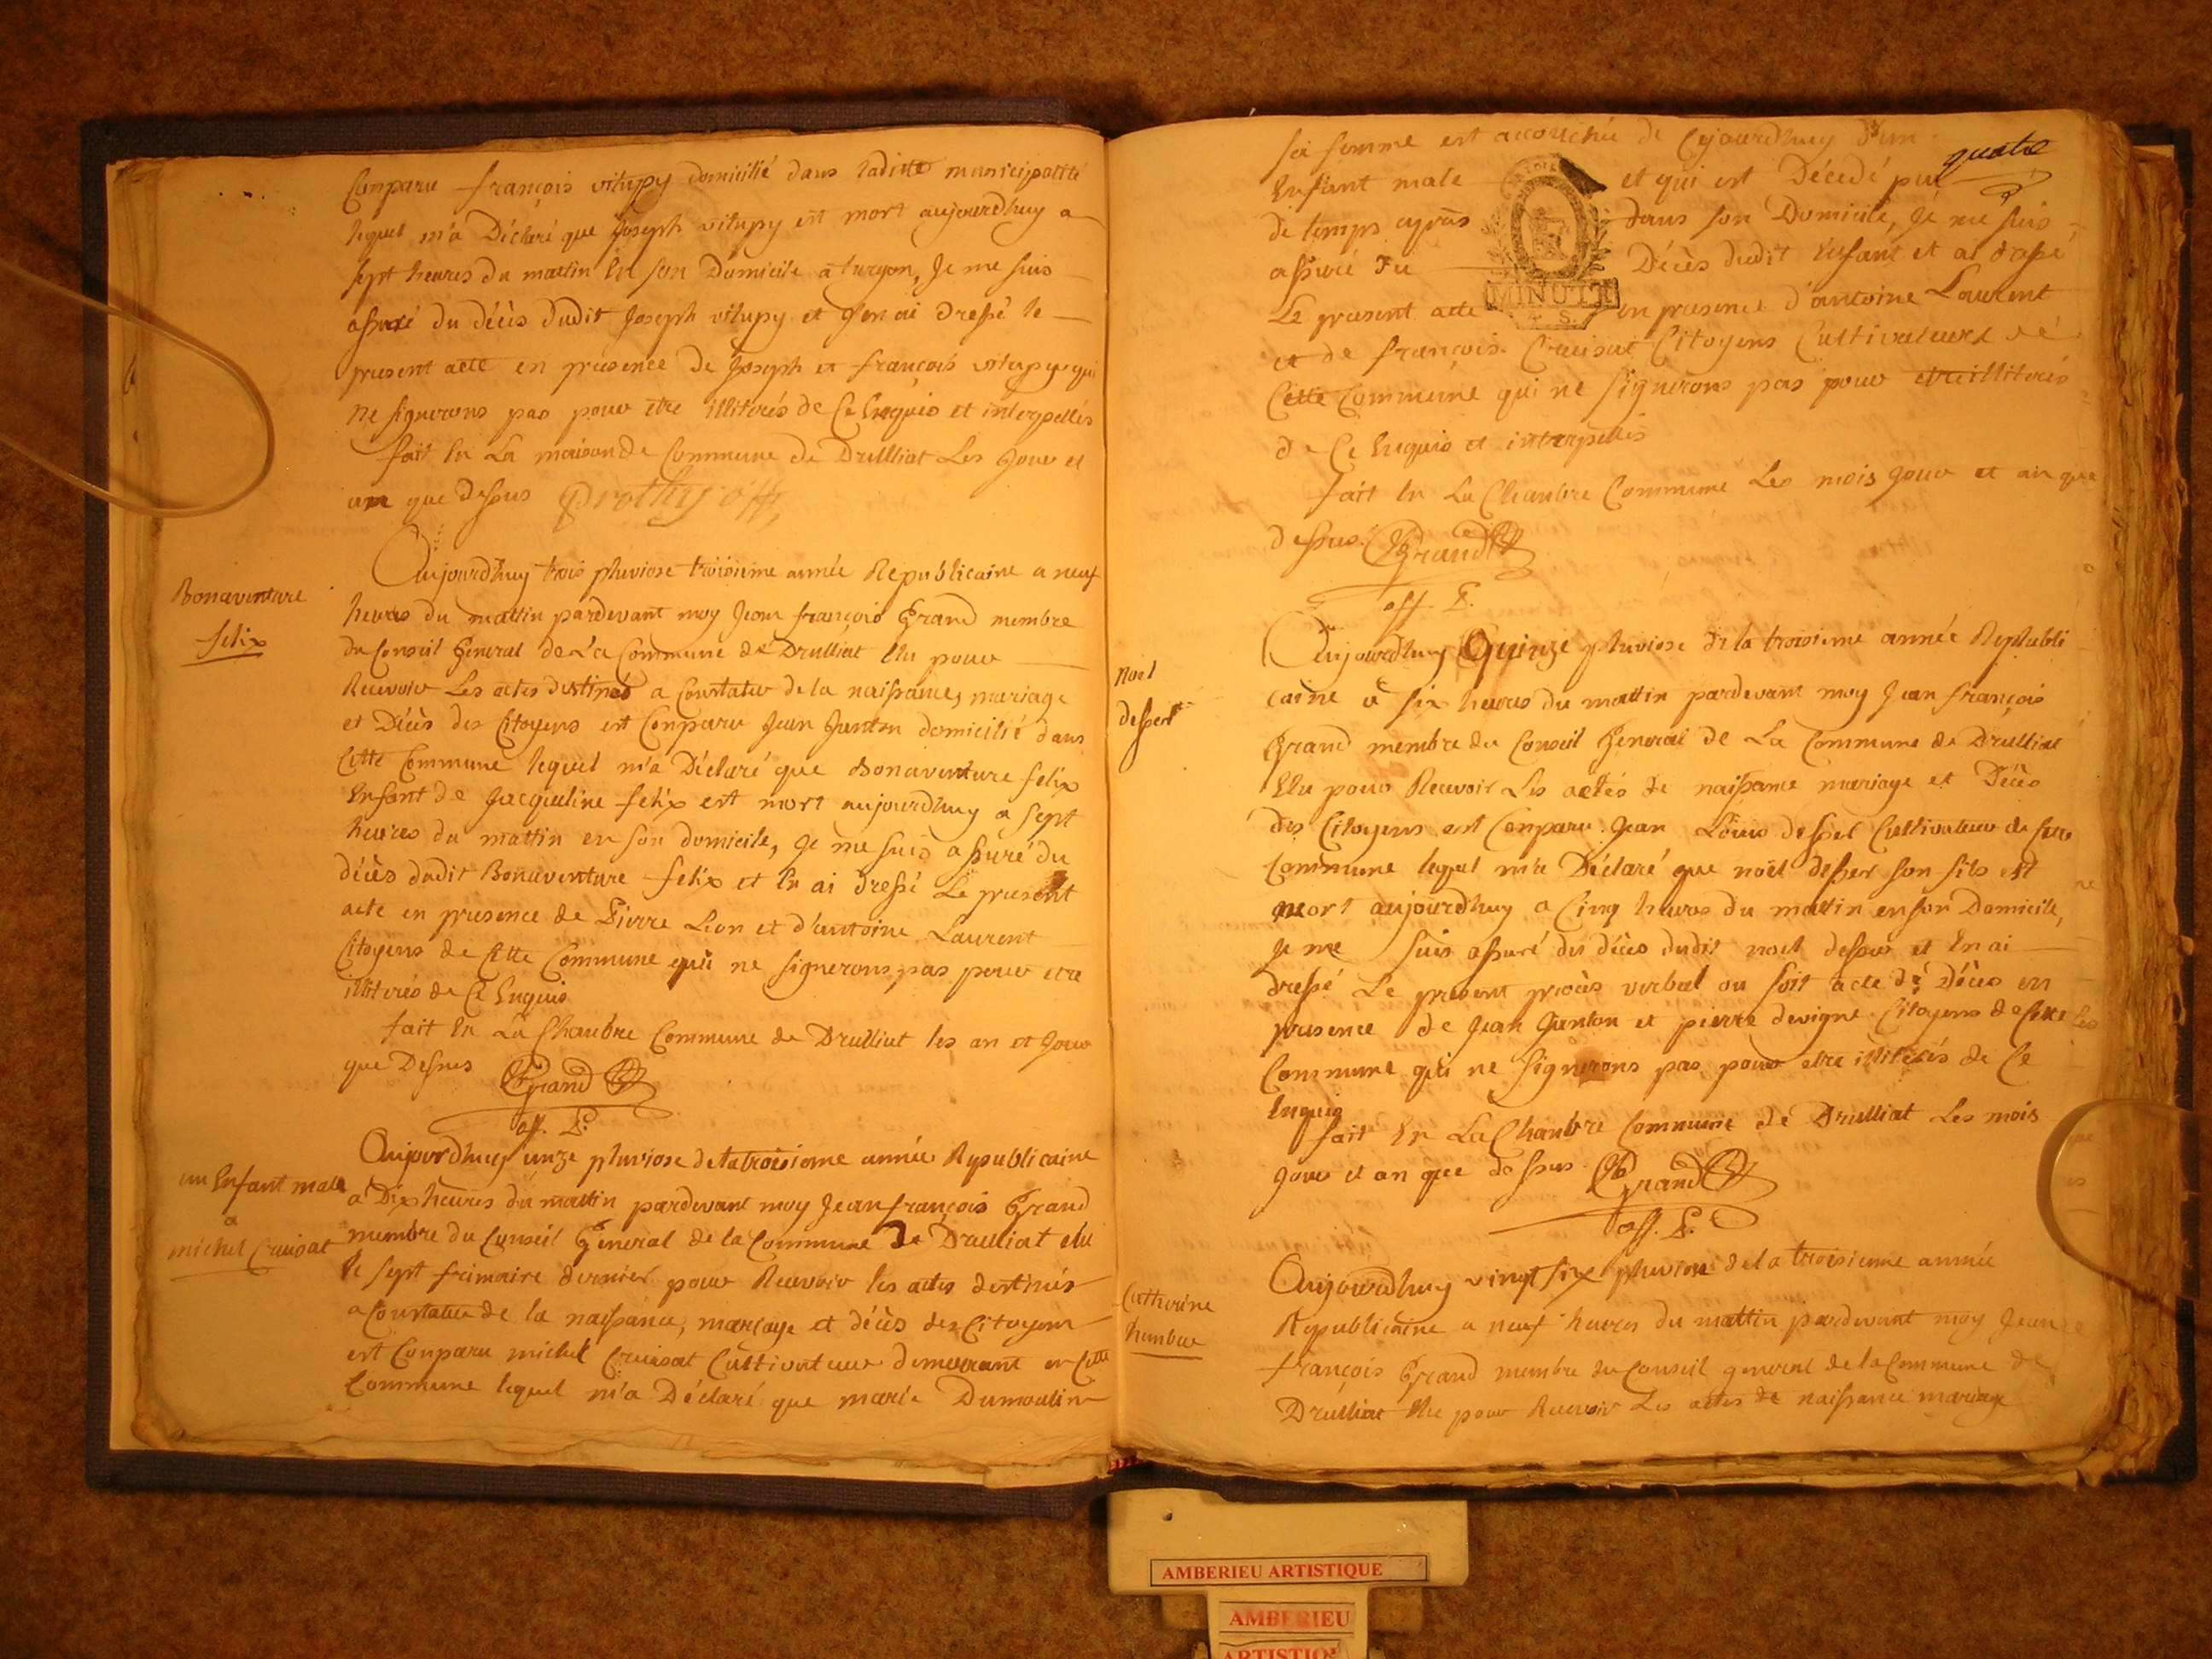 Conparu françois vitupy domicilié dans laditte municipalité
lequel m'a Déclaré que Joseph vitupy est mort aujourdhuy a
sept heures du mattin En son Domicile a turgon, Je me suis
assuré du décès dudit Joseph vitupy et J'en ai dressé le
present acte en presence de Joseph et françois vitupy qui
ne signerons pas pour etre illiterés de Ce Enquis et interpellés
fait En La maison de Commune de Druilliat Les Jour et
an que dessus Prothy off,
Bonaventure
felix
Aujourdhuy trois pluviose troisieme année Republicaine a neuf
heures du mattin pardevant moy Jean françois Grand membre
du Conseil General de La Commune de Drulliat Elu pour
Recevoir Les actes destinés a Constater de la naissance, mariage
et Décès des Citoyens est Conparu Jean Junton domicilié dans
Cette Commune lequel m'a Déclaré que Bonaventure felix
Enfant de Jacqueline felix est mort aujourdhuy a sept
heures du mattin en son domicile, Je me suis assuré du
décès dudit Bonaventure felix et En ai dressé Le present
acte en presence de Pierre Lion et d'antoine Laurent
Citoyens de Cette Commune qui ne signerons pas pour etre
illiterés de Ce Enquis
fait En La Chanbre Commune de Drulliat les an et Jour
que Dessus Grand
off. P.
un Enfant male
a
michel Cruisat
Aujourdhuy unze pluviose de la troisieme année Republicaine
a Dix heures du mattin pardevant moy Jean françois Grand
membre du Conseil General de la Commune De Drulliat elu
le sept frimaire dernier pour Recevoir les actes destinés
a Constater de la naissance, mariage et décès des Citoyens
est Conparu michel Cruisat Cultivateur demeurant en Cette
Commune lequel m'a Déclaré que marie Dumoulin
quatre
sa femme est accouchée de Cejourdhuy d'un
Enfant male et qui est Décedé peu
de temps après dans son Domicile, Je me suis
assuré Du Décès dudit Enfant et ai dressé
Le present acte en presence d'antoine Laurent
MINUTE
et de françois Cruisat Citoyens Cultivateurs de
Cette Commune qui ne signerons pas pour etre illiterés
de Ce Enquis et interpellés
fait En La Chanbre Commune Les mois Jour et an que
dessus. Grand
off. P.
Noel
desser
Aujourdhuy Quinze pluviose de la troisieme année Republi
caine a six heures du mattin pardevant moy Jean françois
Grand membre du Conseil General de La Commune de Drulliat
Elu pour Recevoir Les actes de naissance mariage et Décès
des Citoyens est Conparu Jean Louis Cultivateur de
Commune lequel m'a Déclaré que noël desser son fils est
mort aujourdhuy a Cinq heures du mattin en son Domicile,
Je me suis assuré du décès dudit noel desser et En ai
dressé Le present procès verbal ou soit acte de Décès en
presence de Jean Junton et pierre devigne Citoyens de Cette
Commune qui ne signerons pas pour etre illiterés de Ce
Enquis
fait En La Chanbre Commune de Drulliat Les mois
Jour et an que dessus. Grand
off. P.
Catherine
humbert
Aujourdhuy vingt six pluviose de la troisieme année
Republicaine a neuf heures du mattin pardevant moy Jean
françois Grand membre du Conseil general de la Commune de
Drulliat Elu pour Recevoir Les actes de naissance mariage
AMBERIEU ARTISTIQUE
AMBERIEU
ARTISTIQ